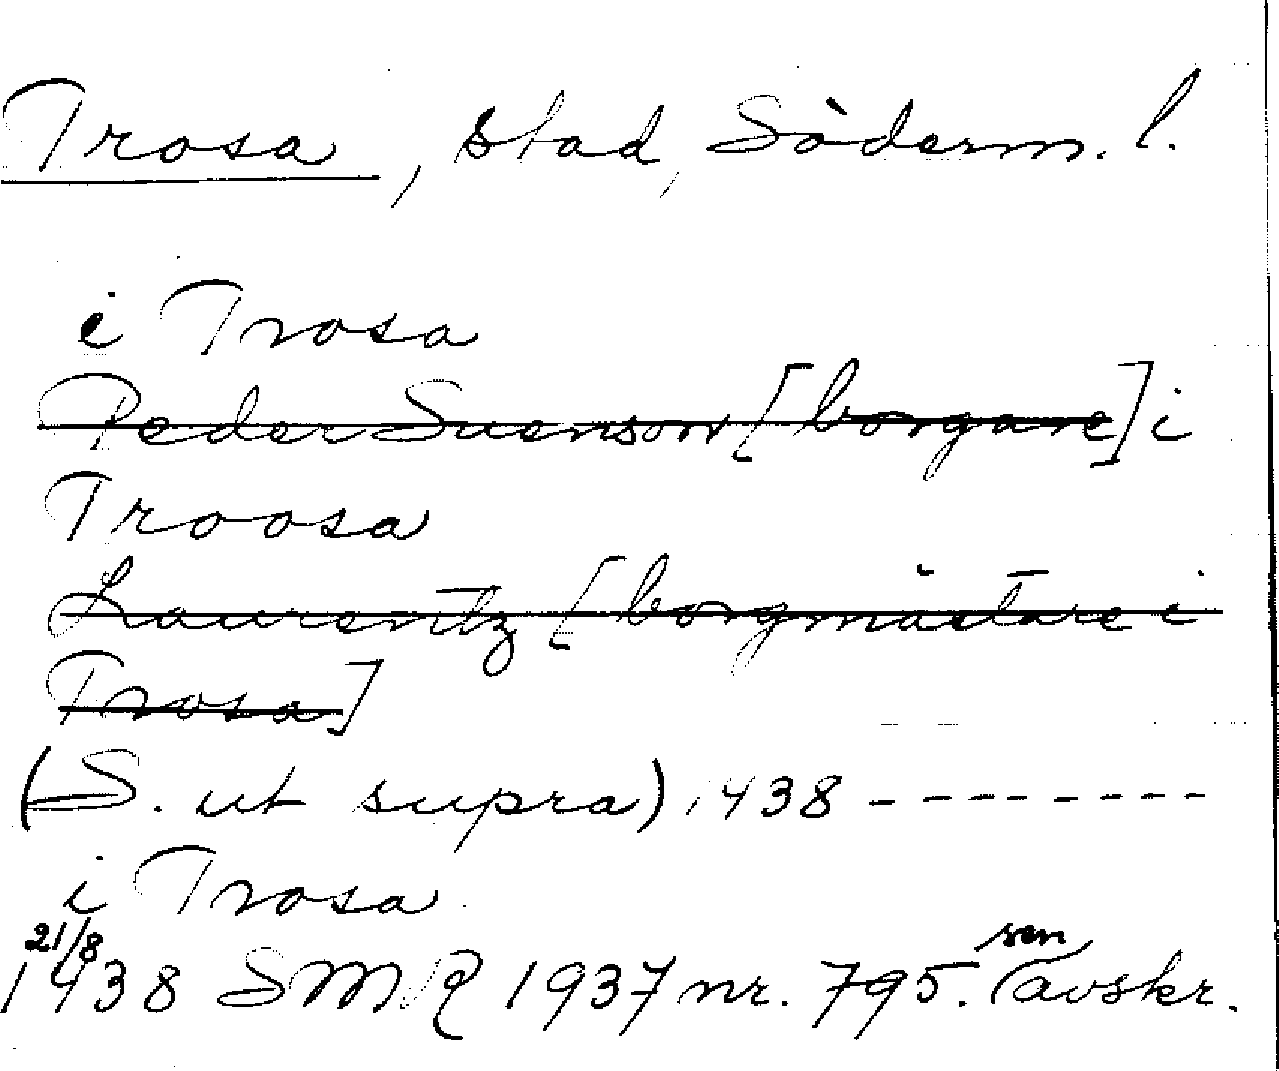 Trosa, stad, Söderm. l.
i Trosa
Peder Suenson [borgare] i
Troosa
Laurentz [borgmästare i
Trosa]
(S. ut supra) 1438 --------
i Trosa
21/8 sen
1438 SMR 1937 nr. 795. avskr.